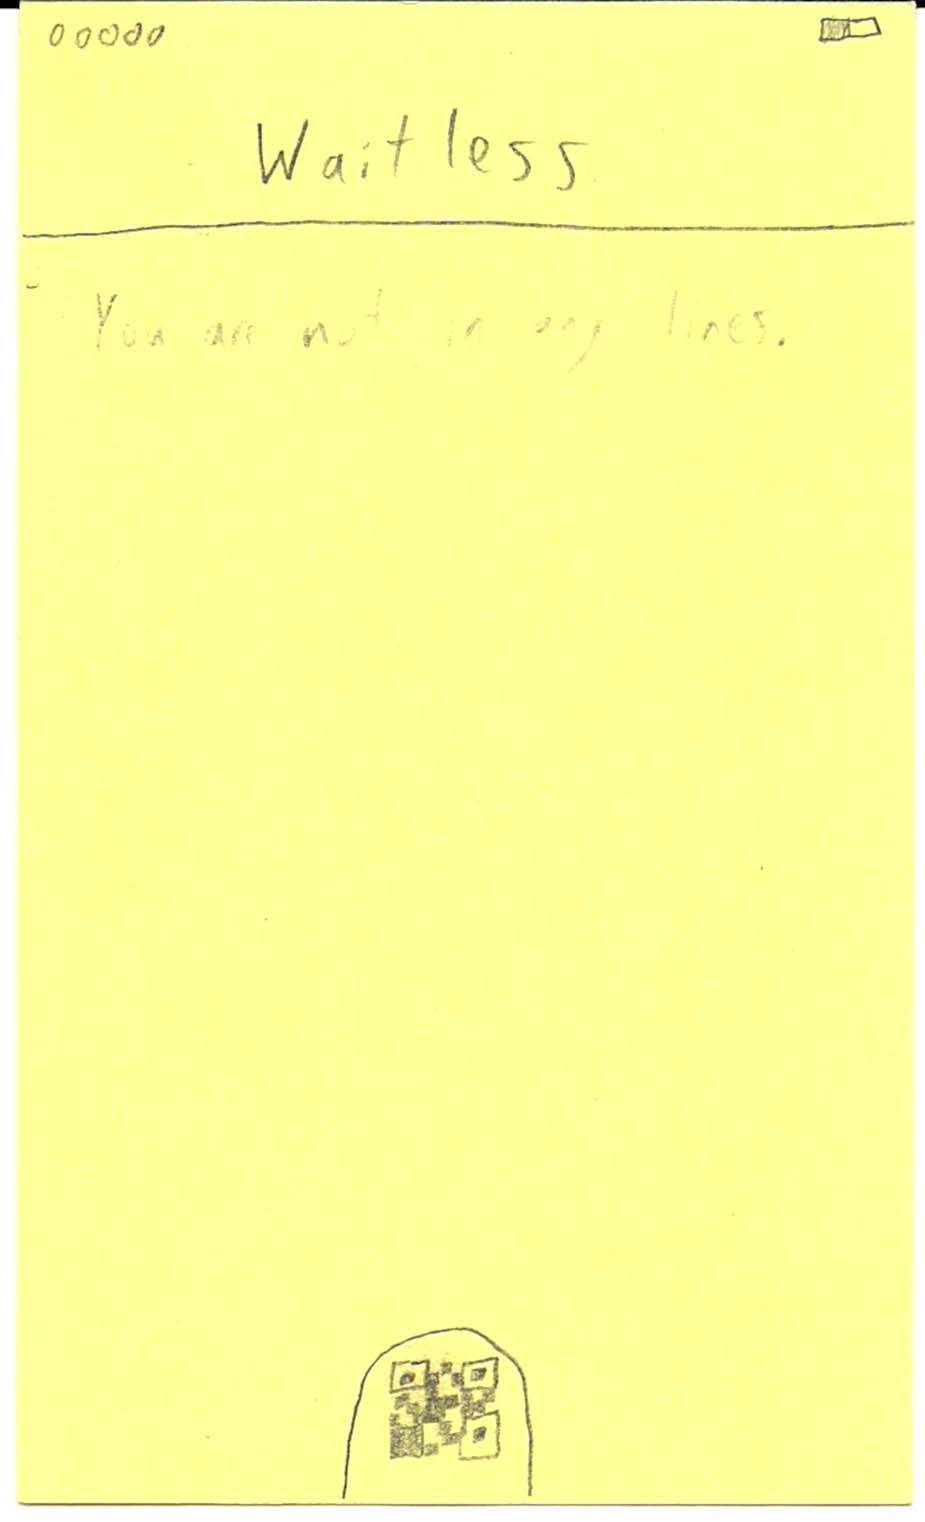 Waitless
You are not in any lines.